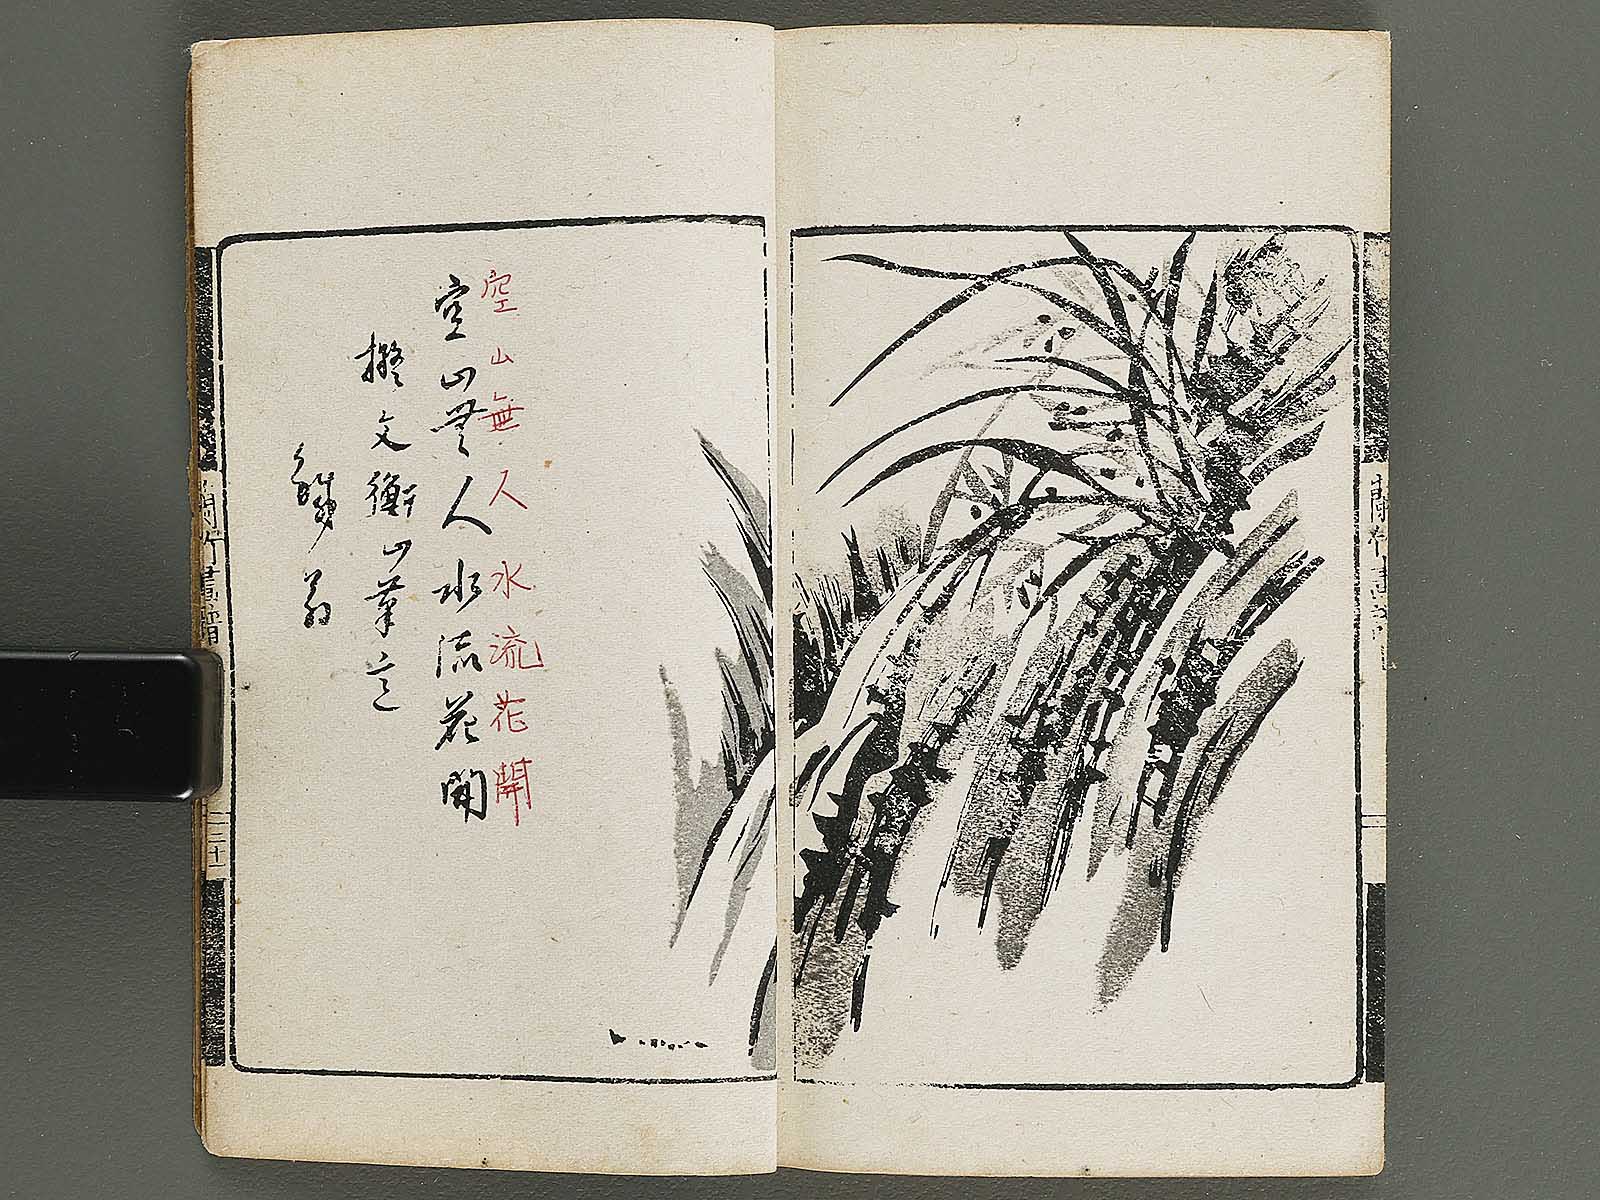 蘭竹畫譜
空山無人水流花開
空山無人水流花開
擬文衡山筆意
鐵翁
蘭竹畫譜